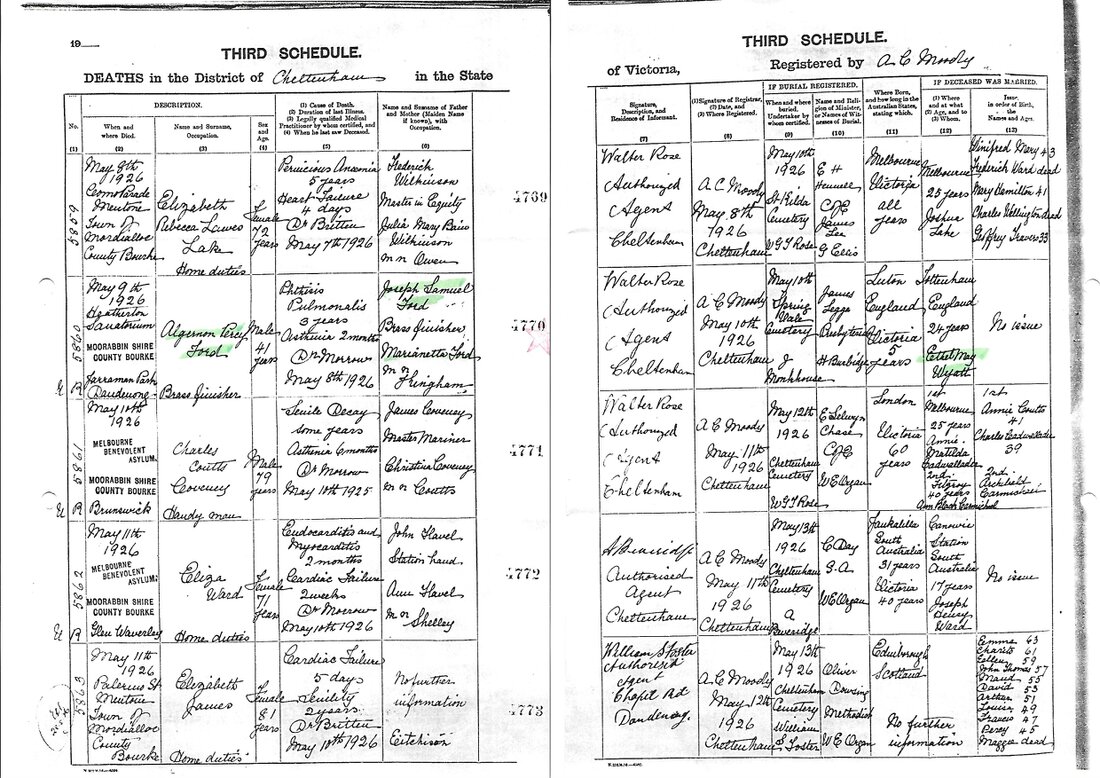 19
THIRD SCHEDULE.
DEATHS in the District of Cheltenham in the State
No.
DESCRIPTION.
When and where Died.
Name and Surname, Occupation.
Sex and Age.
(1) Cause of Death.
(2) Duration of last Illness.
(3) Legally qualified Medical Practitioner by whom certified, and
(4) When he last saw Deceased.
Name and Surname of Father and Mother (Maiden Name if known), with Occupation.
(1) (2) (3) (4) (5) (6)
5859
May 8th
1926
Como Parade
Mentone
Town of
Mordialloc
County Bourke
Elizabeth
Rebecca Lawes
Lake
Home duties
Female
72
years
Pernicious Anaemia
5 years
Heart Failure
4 days
Dr Britten
May 7th 1926
Frederich
Wilkinson
Master in Equity
Julia Mary
Wilkinson
m n Owen
4769
5860
May 9th
1926
Heatherton
Sanatorium
MOORABBIN SHIRE
COUNTY BOURKE
R Jarraman Park
Dandenong
Algernon Percy
Ford
Brass finisher
Male
41
years
Phthisis
Pulmonalis
3 years
Asthenia 2 months
Dr Morrow
May 8th 1926
Joseph Samuel
Ford
Brass finisher
Marianetta Ford
m n
Fringham
4770
5861
May 10th
1926
MELBOURNE
BENEVOLENT
ASYLUM.
MOORABBIN SHIRE
COUNTY BOURKE
R Brunswick
Charles
Coutts
Coveney
Handy man
Male
79
years
Senile Decay
some years
Asthenia 6 months
Dr Morrow
May 10th 1925
James Coveney
Master Mariner
Christina Coveney
m n Coutts
4771
5862
May 11th
1926
MELBOURNE
BENEVOLENT
ASYLUM.
MOORABBIN SHIRE
COUNTY BOURKE
R Glen Waverley
Eliza
Ward
Home duties
Female
71
years
Endocarditis and
Myocarditis
2 months
Cardiac Failure
2 weeks
Dr Morrow
May 10th 1926
John Havel
Station hand
Ann Havel
m n
Shelley
4772
5863
May 11th
1926
Palermo St
Mentone
Town of
Mordialloc
County
Bourke
Elizabeth
James
Home duties
Female
81
years
Cardiac Failure
5 days
Senility
2 years
Dr Britten
May 10th 1926
No further
information
Eitchison
4773
THIRD SCHEDULE.
of Victoria, Registered by A C Moody
Signature, Description, and Residence of Informant.
(1) Signature of Registrar,
(2) Date, and
(3) Where Registered.
IF BURIAL REGISTERED.
When and where buried. Undertaker by whom certified.
Name and Religion of Minister, or Names of Witnesses of Burial.
Where Born, and how long in the Australian States, stating which.
IF DECEASED WAS MARRIED.
(1) Where and at what
(2) Age, and to
(3) Whom.
Issue, in order of Birth, the Names and Ages.
(7) (8) (9) (10) (11) (12) (13)
Walter Rose
Authorized
Agent
Cheltenham
A C Moody
May 8th
1926
Cheltenham
May 10th
1926
St Kilda
Cemetery
W G F Rose
E H
C of E
James
Lee
G Ellis
Melbourne
Victoria
all
years
Melbourne
25 years
Joshua
Lake
Winifred Mary 43
Frederich Ward dead
Mary Hamilton 41
Charles Wellington dead
Geoffrey Travers 33
Walter Rose
Authorized
Agent
Cheltenham
A C Moody
May 10th
1926
Cheltenham
May 10th
Spring
Vale
Cemetery
J
Monkhouse
James
Legge
Presbyterian
H Burbidge
Luton
England
Victoria
5
years
Tottenham
England
24 years
Ethel May
Wyatt
No issue
Walter Rose
Authorized
Agent
Cheltenham
A C Moody
May 11th
1926
Cheltenham
May 12th
1926
Cheltenham
Cemetery
W G F Rose
E Selwyn
Chase
C of E
W E Organ
London
Victoria
60
years
1st
Melbourne
25 years
Annie
Matilda
Cadwallader
2nd
Fitzroy
40 years
Ann Black Carmichael
1st
Annie Coutts
41
Charles Cadwallader
39
2nd
Archibald
Carmichael
Authorised
Agent
Cheltenham
A C Moody
May 11th
1926
Cheltenham
May 13th
1926
Cheltenham
Cemetery
A
Beveridge
C Day
S.A.
W E Organ
Yankalilla
South
Australia
31 years
Victoria
40 years
Canowie
Station
South
Australia
17 years
Joseph
Henry
Ward
No issue
William S Foster
Authorised
Agent
Chapel Rd
Dandenong
A C Moody
May 12th
1926
Cheltenham
May 13th
1926
Cheltenham
Cemetery
William
S Foster
Oliver
Dowsing
Methodist
W E Organ
Edinborough
Scotland
No further
information
Emma 63
Charles 61
Ellen 59
John Thomas 57
Maud 55
David 53
Arthur 51
Louisa 49
Francis 47
Percy 45
Maggie dead